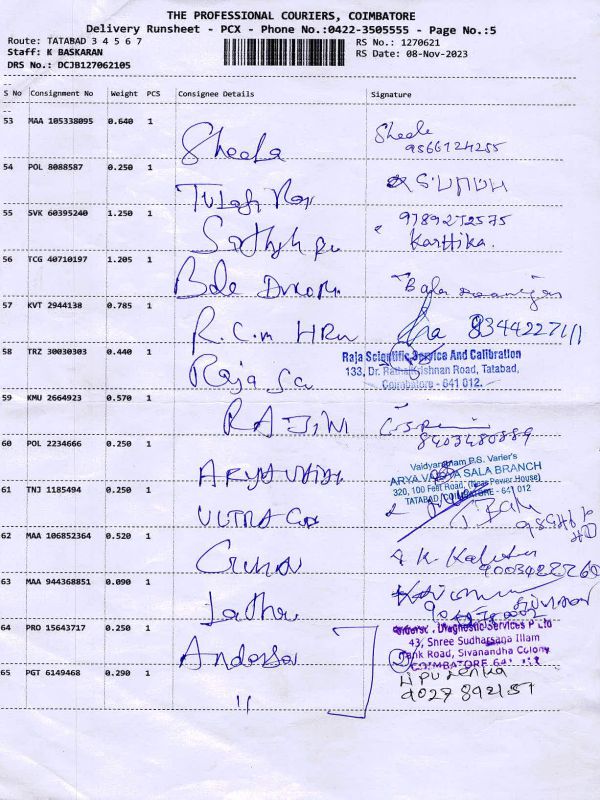 THE PROFESSIONAL COURIERS, COIMBATORE
Delivery Runsheet - PCX - Phone No.:0422-3505555 - Page No.:5
Route: TATABAD 3 4 5 6 7
RS No.: 1270621
Staff: K BASKARAN
RS Date: 08-Nov-2023
DRS No.: DCJB127062105
S No Consignment No Weight PCS Consignee Details Signature
53 MAA 105338095 0.640 1 Sheela Sheela
9566124255
54 POL 8088587 0.250 1
55 SVK 60395240 1.250 1 9789272575
Karthika.
56 TCG 40710197 1.205 1 Bala
57 KVT 2944138 0.785 1 R.C.M HRM 8344227111
58 TRZ 30030303 0.440 1 Raja Sc
Raja Scientific Service And Calibration
133, Dr. Rathakrishnan Road, Tatabad,
Coimbatore - 641 012.
59 KMU 2664923 0.570 1 RAJINI
8403480889
60 POL 2234666 0.250 1 ARYA
Vaidyaratnam P.S. Varier's
ARYA VAIDYA SALA BRANCH
320, 100 Feet Road, (Near Power House)
TATABAD, COIMBATORE - 641 012
61 TNJ 1185494 0.250 1 ULTRA
62 MAA 106852364 0.520 1 Guna K.
63 MAA 944368851 0.090 1 Latha
64 PRO 15643717 0.250 1
Diagnostic Services P Ltd
43, Shree Sudharsana Illam
Tank Road, Sivanandha Colony
COIMBATORE
65 PGT 6149468 0.290 1 "
9027892151